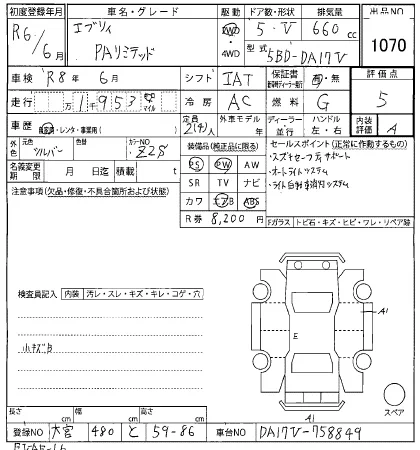 初度登録年月 車名・グレード 駆動 ドア数・形状 排気量 出品NO
R6/6月 エブリィ PAリミテッド 2WD・4WD 5・V 660cc 1070
型式 5BD-DA17V
車検 R8年 6月 シフト IAT 保証書 有・無 評価点
走行 万1千953 km マイル 冷房 AC 燃料 G 5
車歴 自家用・レンタ・事業用( ) 定員 2(4)人 外車モデル 年 ディーラー・並行 ハンドル 左・右 内装評価 A
外色 元色 シルバー 色替 カラーNO Z2S 装備品(純正品に限る) セールスポイント(正常に作動するもの)
名義変更期限 月 日迄 積載 t PS PW AW ・スズキセーフティサポート
注意事項(欠品・修復・不具合箇所および状態) SR TV ナビ ・オートライトシステム
カワ エアB ABS
R券 8,200円 Fガラス トビ石・キズ・ヒビ・ワレ・リペア跡
検査員記入 内装 汚レ・スレ・キズ・キレ・コゲ・穴
小キズB
E
A1
A1
スペア
長さ cm 幅 cm 高さ cm
登録NO 大宮 480 と 59-86 車台NO DA17V-758849